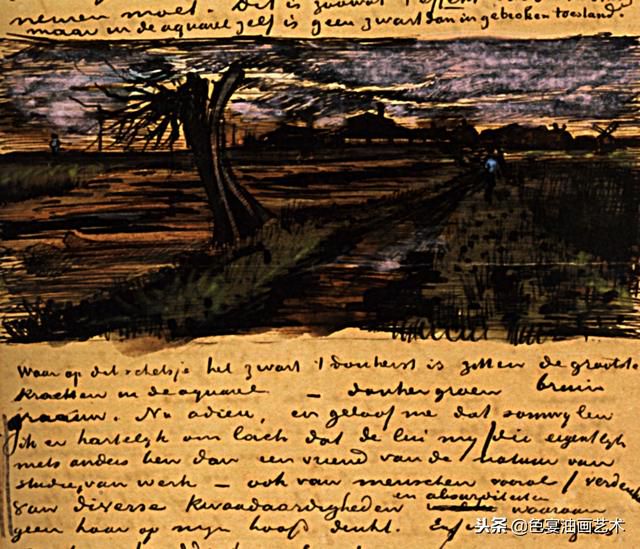 nemen moet. Dit is zoowat l'effet
maar in de aquarel zelf is geen zwart dan in gebroken toestand.
Waar op dit schetsje het zwart 't donkerst is zitten de grootste
krachten in de aquarel — donkergroen bruin
graauw. Nu adieu, en geloof me dat somwylen
ik er hartelyk om lach dat de lui my / die eigentlyk
niets anders ben dan een vriend van de natuur van
studie, van werk — ook van menschen vooral / verdenken
van diverse kwaadaardigheden en absurditeiten waaraan
geen haar op myn hoofd denkt. Enfin
头条 @色宴油画艺术